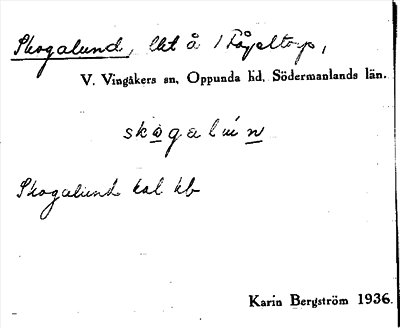 Skogalund, lht å 1 Fågeltorp,
V. Vingåkers sn, Oppunda hd, Södermanlands län.
sko̲galún̲
Skogalund kal kb
Karin Bergström 1936.